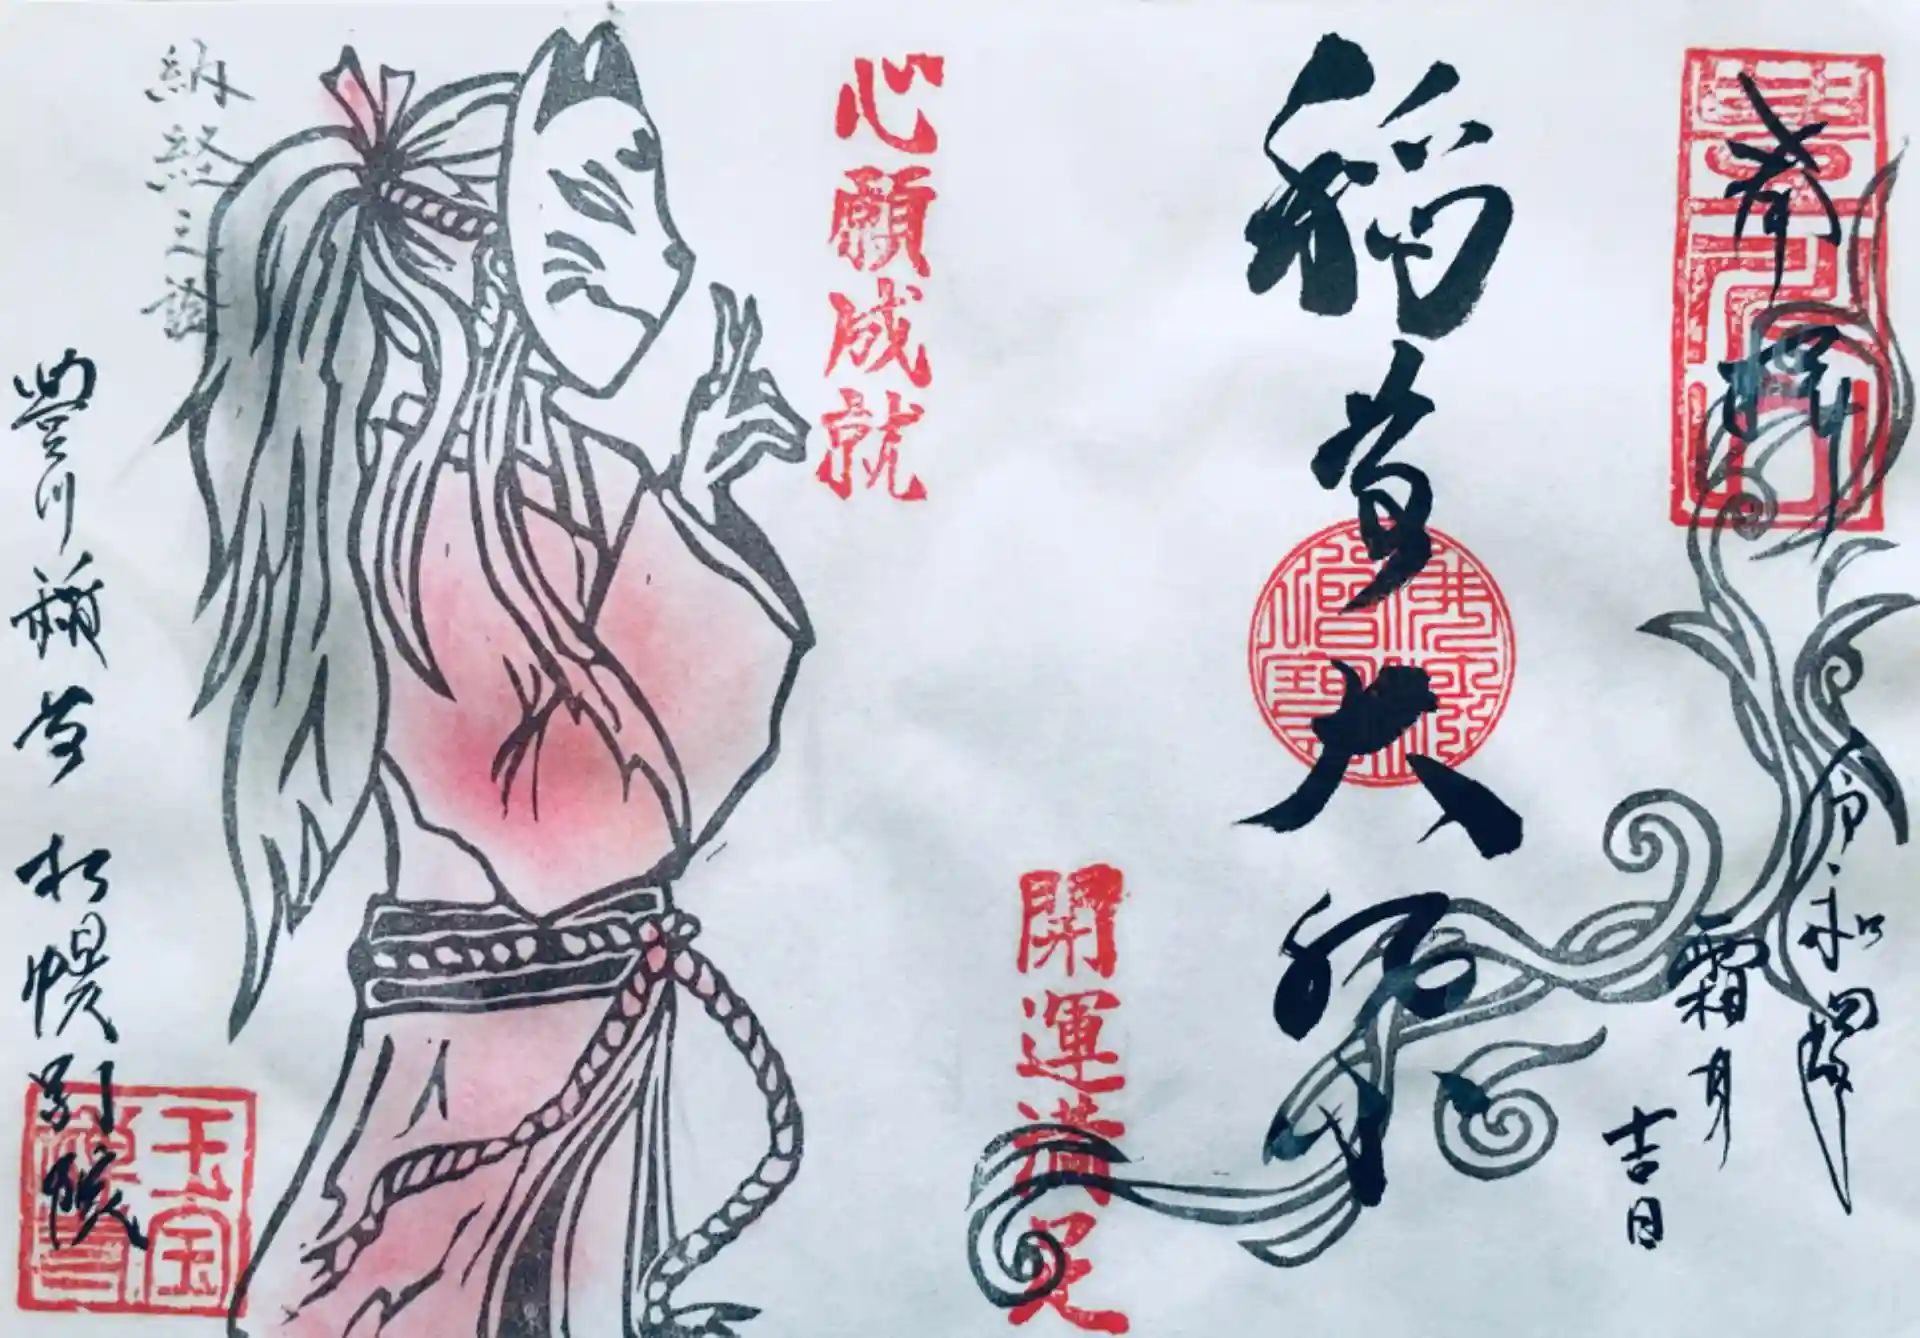 奉拝
令和四年
霜月
吉日
稲荷大祭
佛法僧寶
開運満足
心願成就
納経之證
豊川稲荷札幌別院
玉宝禅寺